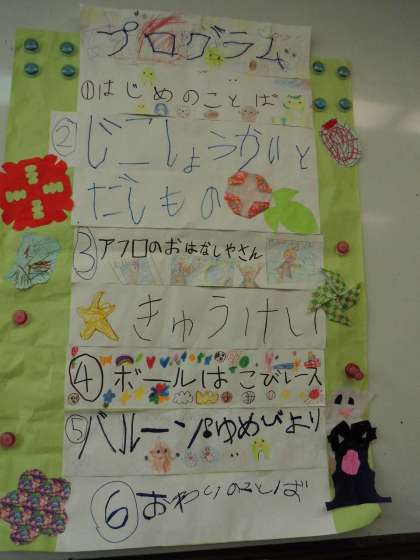 プログラム
①はじめのことば
②じこしょうかいと
だしもの
③アフロのおはなしやさん
きゅうけい
④ボールはこびレース
⑤バルーン♪ゆめびより
⑥おわりのことば